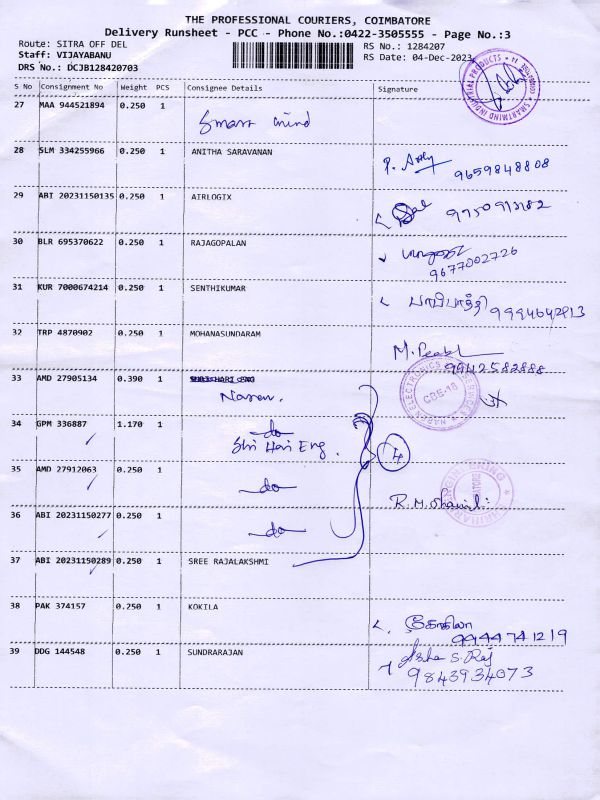 THE PROFESSIONAL COURIERS, COIMBATORE
Delivery Runsheet - PCC - Phone No.:0422-3505555 - Page No.:3
Route: SITRA OFF DEL
RS No.: 1284207
Staff: VIJAYABANU
RS Date: 04-Dec-2023
DRS No.: DCJB128420703
S No Consignment No Weight PCS Consignee Details Signature
27 MAA 944521894 0.250 1 Smart mind
SMARTMIND INDUSTRIAL PRODUCTS
28 SLM 334255966 0.250 1 ANITHA SARAVANAN
9659848808
29 ABI 20231150135 0.250 1 AIRLOGIX
30 BLR 695370622 0.250 1 RAJAGOPALAN
9677002726
31 KUR 7000674214 0.250 1 SENTHIKUMAR
9994642913
32 TRP 4870902 0.250 1 MOHANASUNDARAM
9942582888
33 AMD 27905134 0.390 1
Naren.
CBE-18
34 GPM 336887 1.170 1 do
Shi Hari Eng.
4
35 AMD 27912063 0.250 1
do
36 ABI 20231150277 0.250 1
do
37 ABI 20231150289 0.250 1 SREE RAJALAKSHMI
38 PAK 374157 0.250 1 KOKILA
கோகிலா
9944741219
39 DDG 144548 0.250 1 SUNDRARAJAN
Asha S. Raj
9843934073